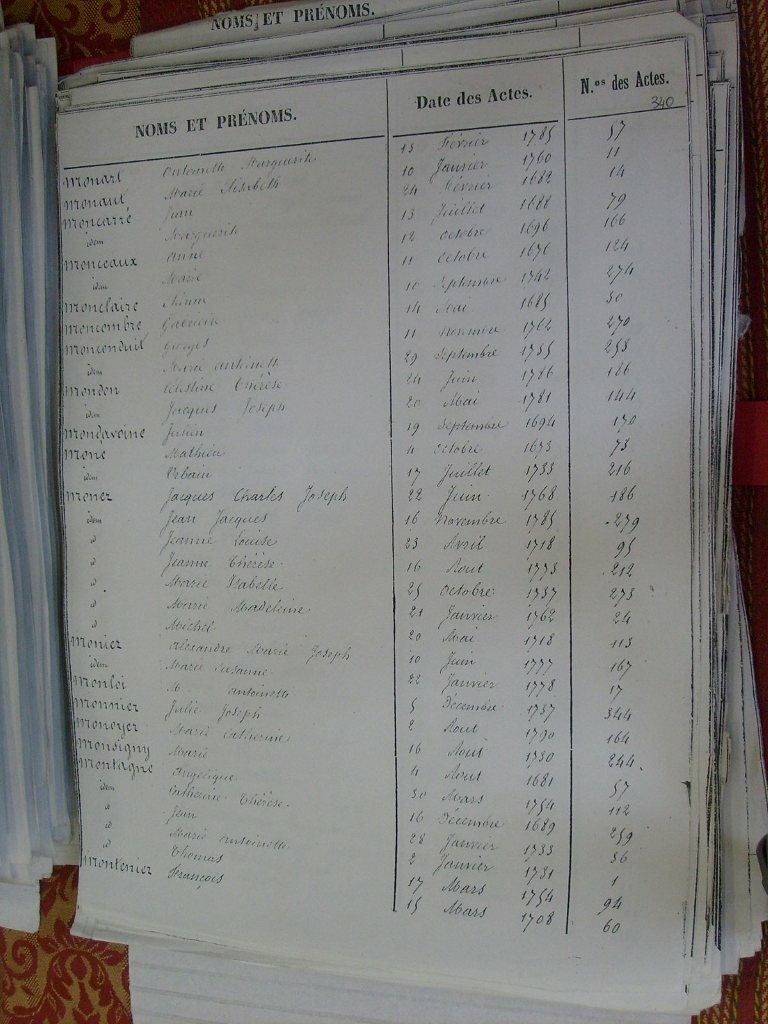 NOMS ET PRÉNOMS.
NOMS ET PRÉNOMS. Date des Actes. N.os des Actes.
340
Monart Antoinette Marguerite 13 Février 1785 57
Monaut Marie Elisbeth 10 Janvier 1760 11
Moncarré Jean 24 Février 1682 14
idem Marguerite 13 Juillet 1688 79
Monceaux Anne 12 Octobre 1696 166
idem Marie 11 Octobre 1676 124
Monclaire 10 Septembre 1742 274
Moncombre 14 Mai 1685 30
Monconduit Georges 11 Novembre 1762 270
idem Marie Antoinette 29 Septembre 1755 253
Mondon Celestine Thérèse 24 Juin 1786 186
idem Jacques Joseph 20 Mai 1781 144
Mondavoine Julien 19 Septembre 1694 170
Mone Mathieu 4 Octobre 1673 73
idem Urbain 17 Juillet 1733 216
Monez Jacques Charles Joseph 22 Juin 1768 186
idem Jean Jacques 16 Novembre 1785 279
d Jeanne Louise 23 Avril 1718 95
d Jeanne Thérèse 16 Aout 1773 212
d Marie Isabelle 25 Octobre 1757 273
d Marie Madeleine 21 Janvier 1762 24
d Michel 20 Mai 1718 113
Moniez Alexandre Marie Joseph 10 Juin 1777 167
idem Marie Susanne 22 Janvier 1778 17
Monloi M antoinette 5 Décembre 1757 344
Monnier Julie Joseph 2 Aout 1790 164
Monoyer Marie Catherine 16 Aout 1730 244
Monsigny Marie 4 Aout 1681 57
Montagne Angelique 30 Mars 1754 112
idem Catherine Thérèse 16 Décembre 1689 259
d Jean 28 Janvier 1733 36
d Marie antoinette 2 Janvier 1731 1
d Thomas 17 Mars 1754 94
Monteniez François 15 Mars 1708 60